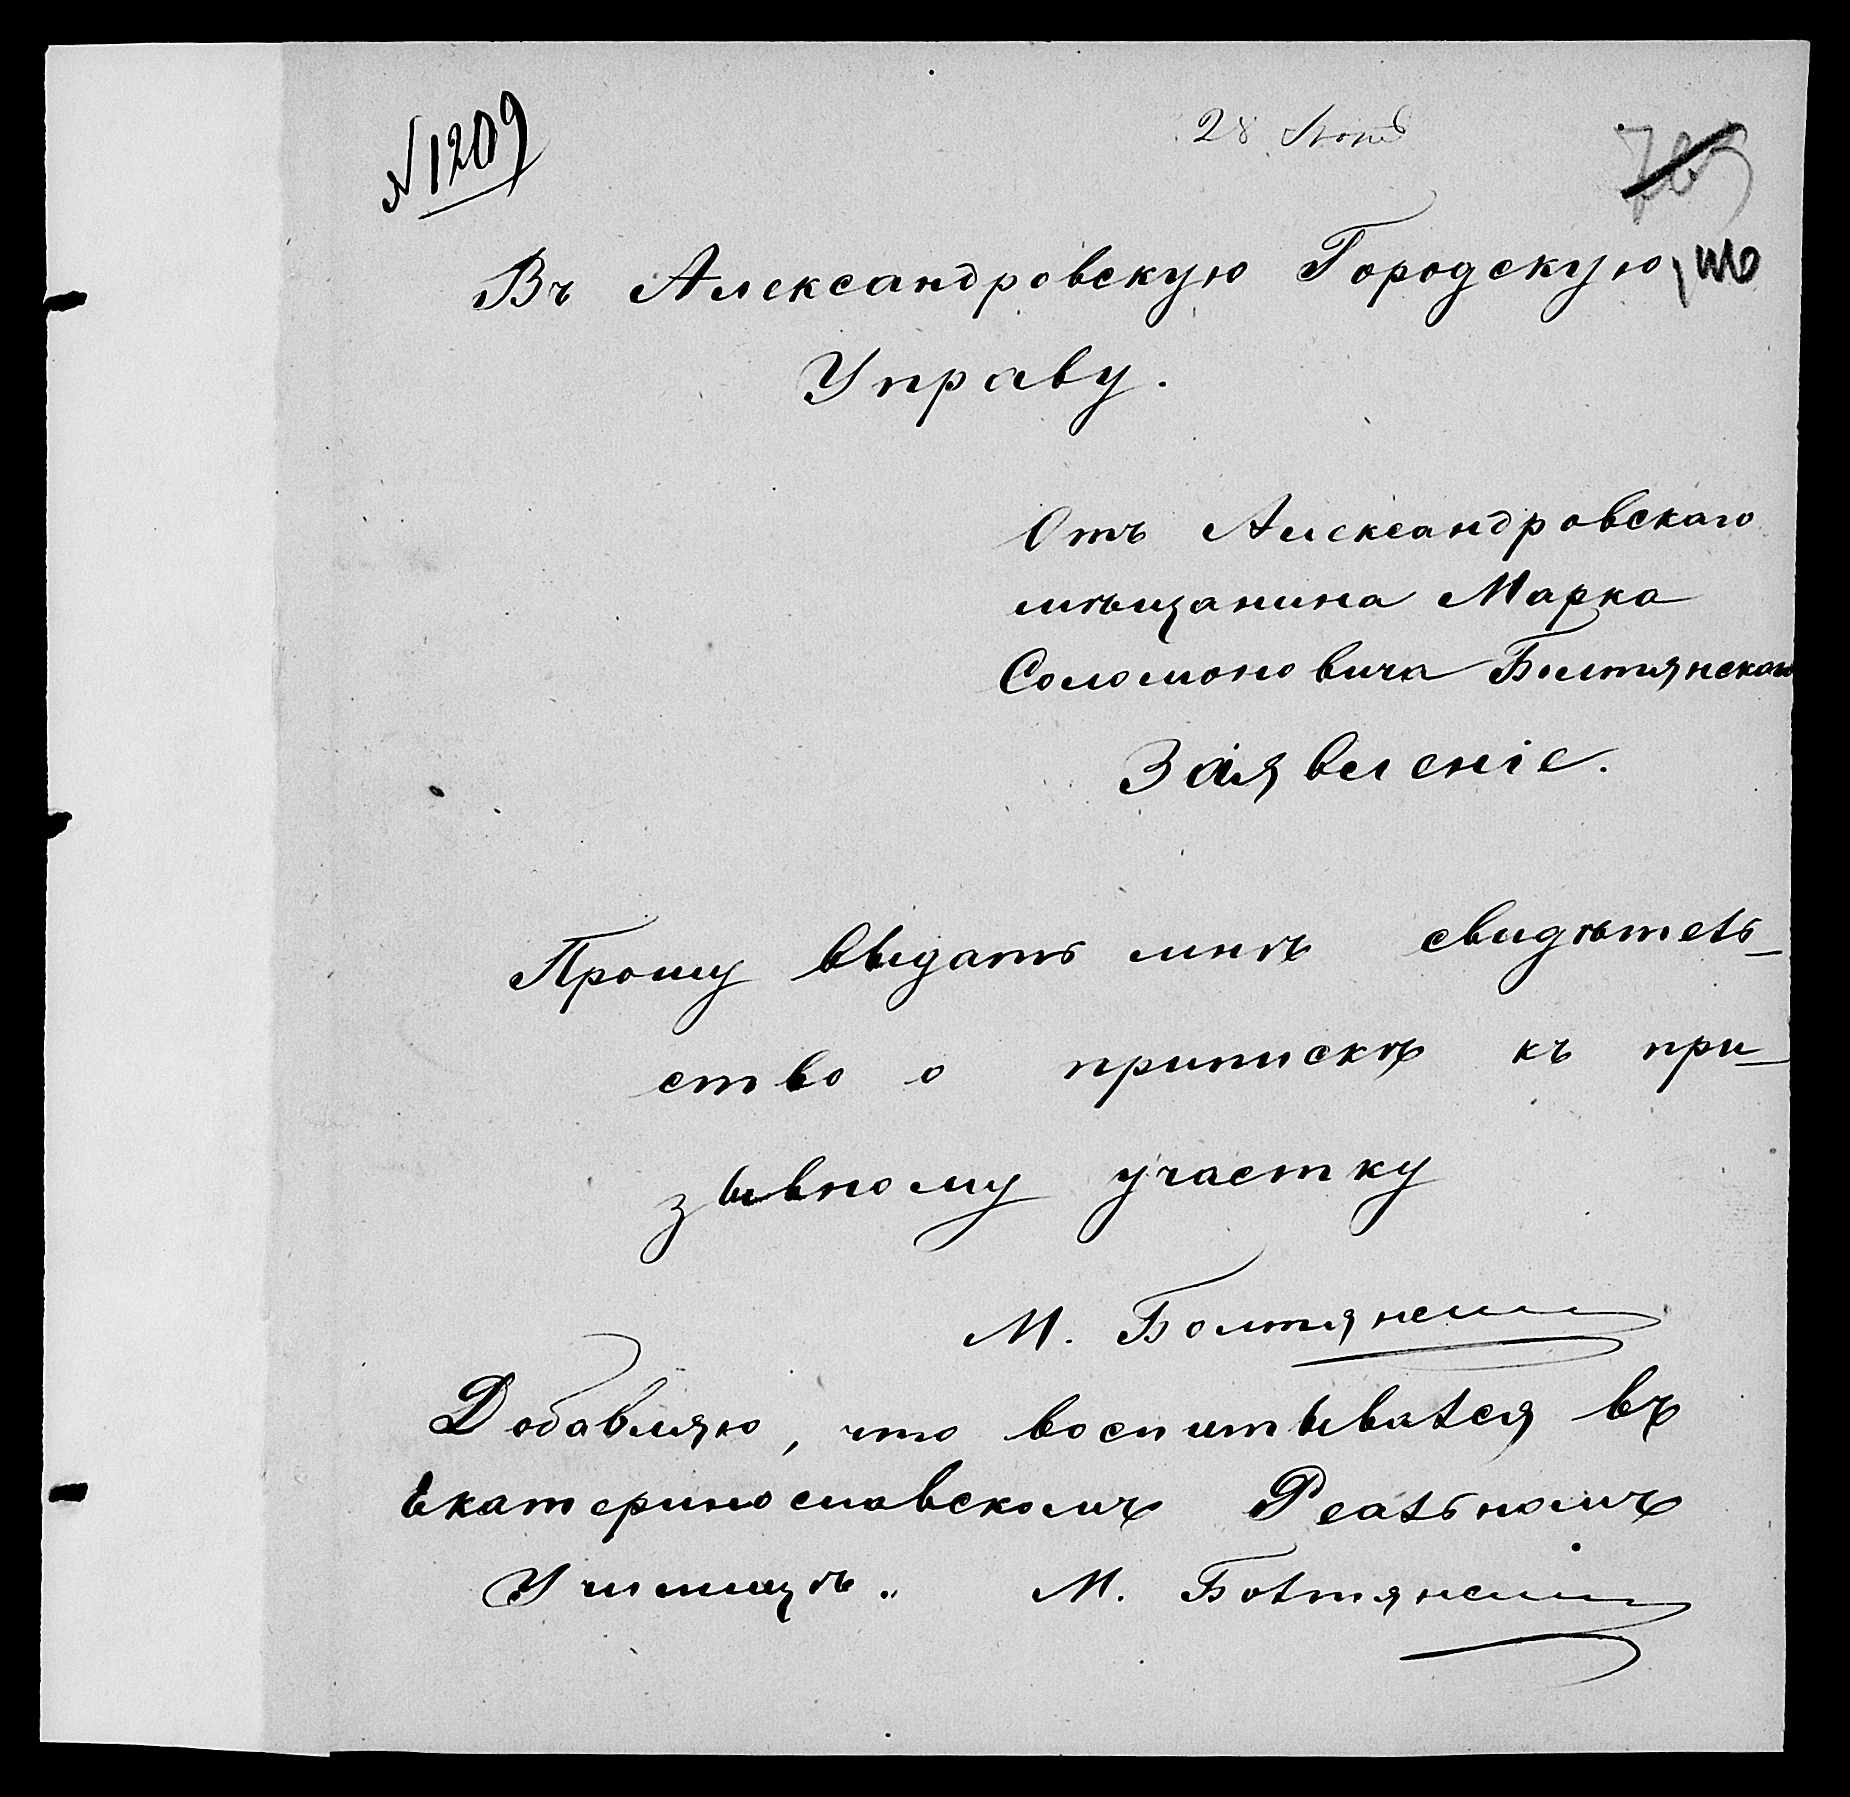 № 1209
28 Июня
Въ Александровскую Городскую
Управу.
Отъ Александровскаго
мѣщанина Марка
Соломоновича Болтянскаго
Заявленіе.
Прошу выдать мнѣ свидѣтель-
ство о припискѣ къ при-
зывному участку
М. Болтянскій
Добавляю, что воспитывался въ
Екатеринославскомъ Реальномъ
Училищѣ.. М. Болтянскій